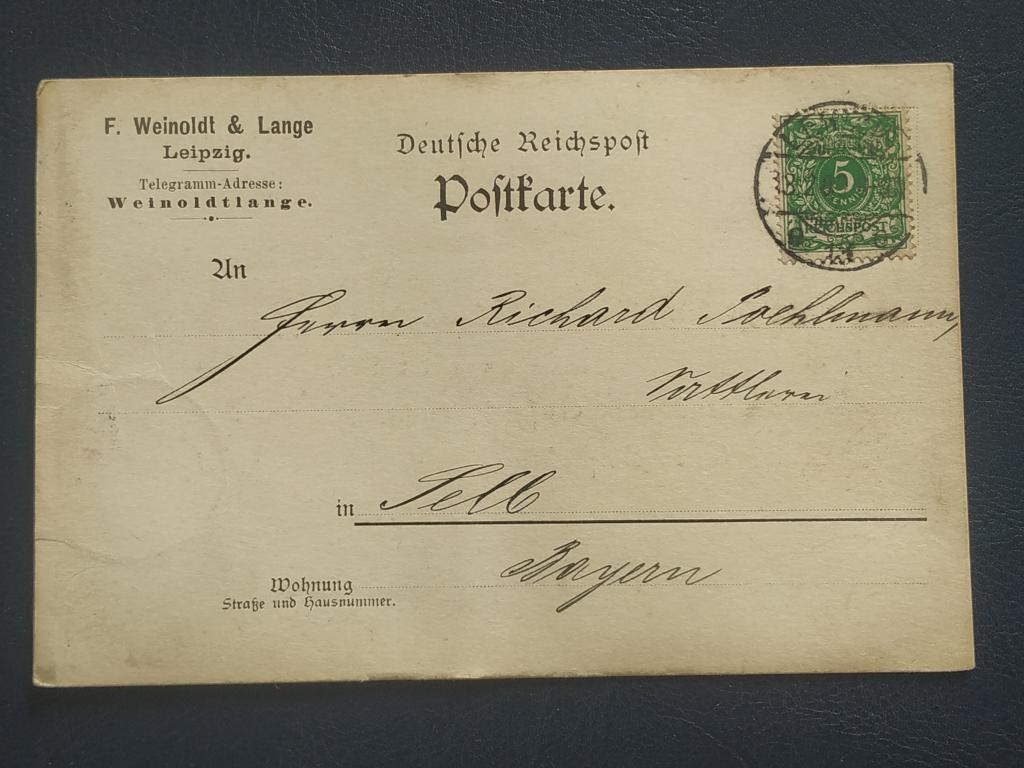 F. Weinoldt & Lange
Leipzig.
Telegramm-Adresse:
Weinoldtlange.
Deutsche Reichspost
Postkarte.
5
PFENNIG
REICHSPOST
An
Herrn Richard Poehlmann,
Sattlerei
in Selb
Bayern
Wohnung
Straße und Hausnummer.